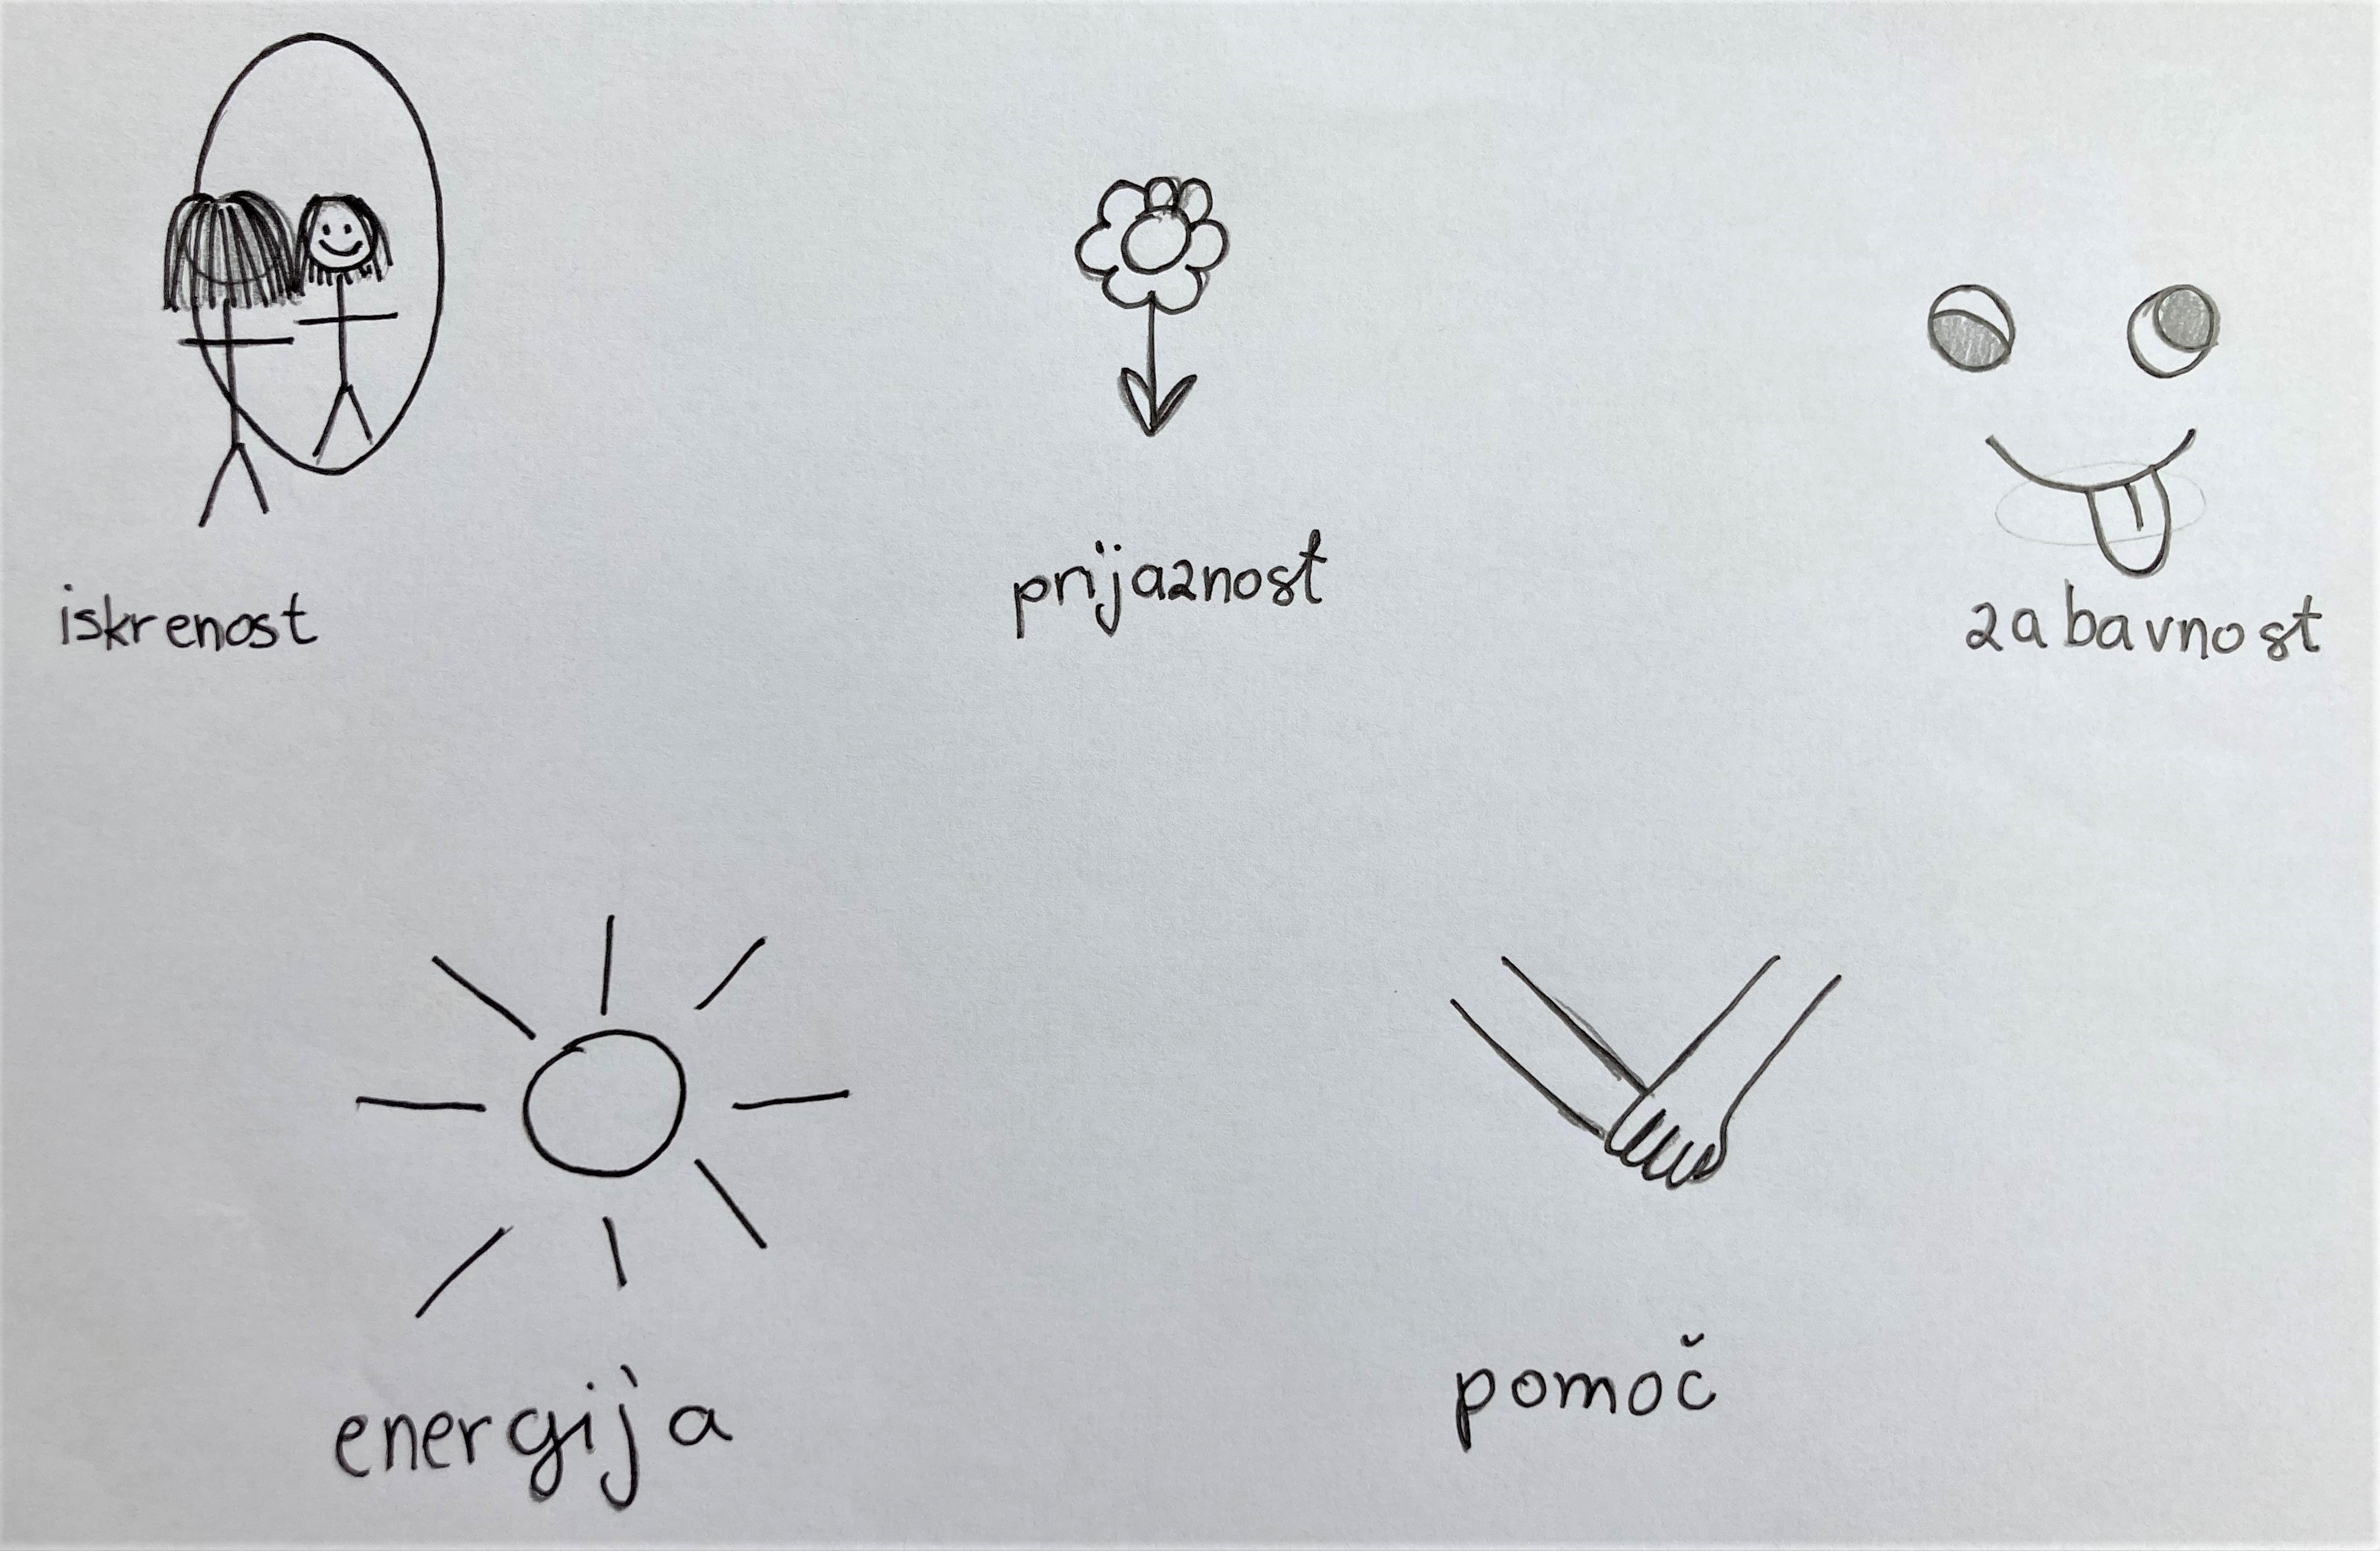 iskrenost
prijaznost
zabavnost
energija
pomoč